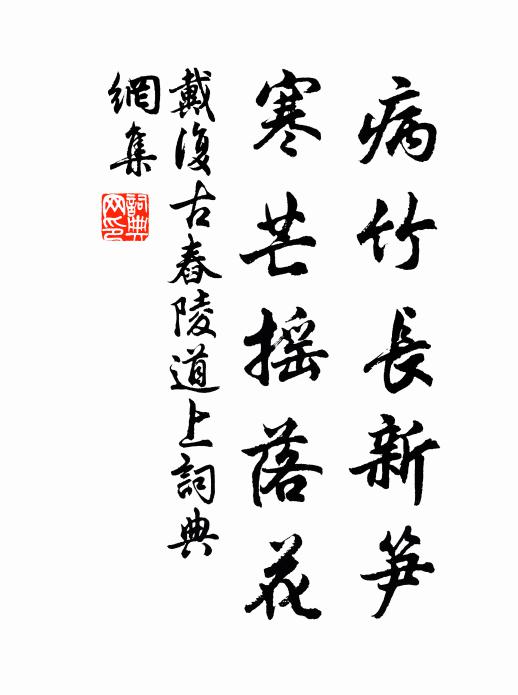 病竹長新笋
寒芒摇落花
戴復古舂陵道上詞典
網集
詞典網印